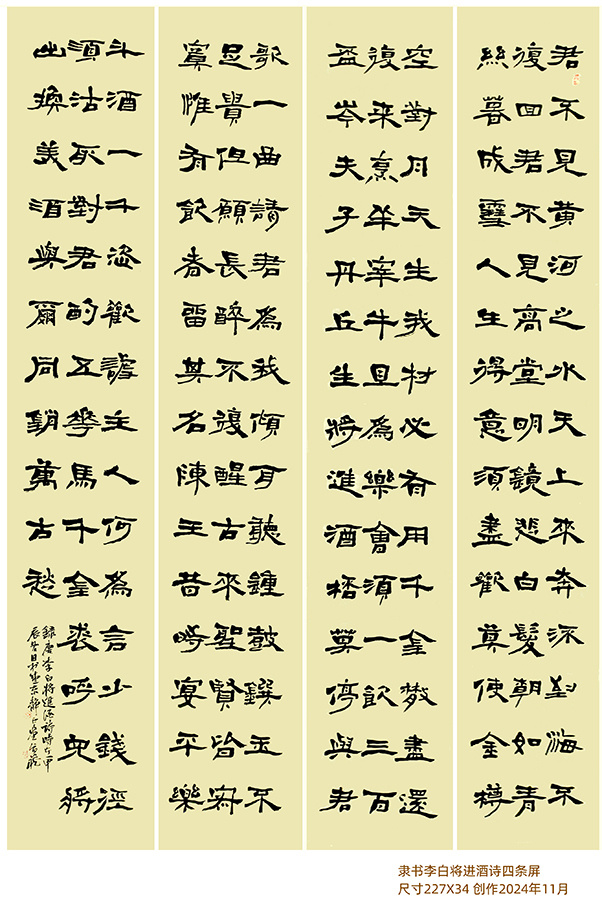 君不見黃河之水天上來奔流到海不
復回君不見高堂明鏡悲白髮朝如青
絲暮成雪人生得意須盡歡莫使金樽
空對月天生我材必有用千金散盡還
復來烹羊宰牛且為樂會須一飲三百
盃岑夫子丹丘生將進酒桮莫停與君
歌一曲請君為我傾耳聽鍾鼓饌玉不
足貴但願長醉不復醒古來聖賢皆寂
寞惟有飲者留其名陳王昔時宴平樂
斗酒一千恣歡謔主人何為言少錢徑
須沽取對君酌五花馬千金裘呼兒將
出換美酒與爾同銷萬古愁
錄唐李白將進酒詩時在甲
辰冬日於
隶书李白将进酒诗四条屏
尺寸227X34 创作2024年11月